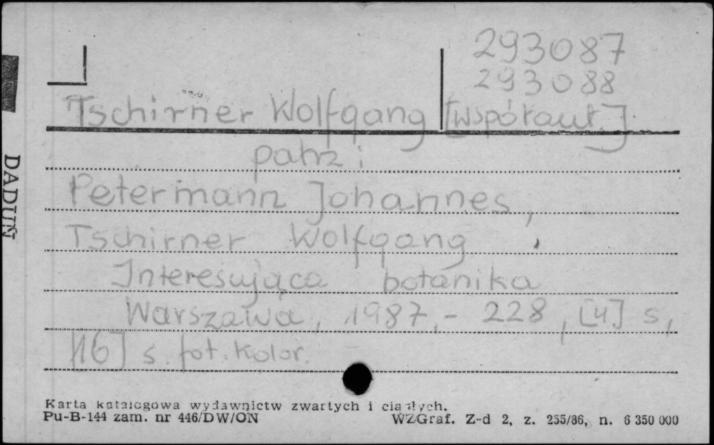 293087
293088
Tschirner Wolfgang [współaut.]
patrz:
Petermann Johannes,
Tschirner Wolfgang
Interesująca botanika
Warszawa, 1987, - 228, [4] s,
[16] s. fot. kolor.
Karta katalogowa wydawnictw zwartych i ciągłych.
Pu-B-144 zam. nr 446/DW/ON WZGraf. Z-d 2, z. 255/86, n. 6 350 000
DADUN